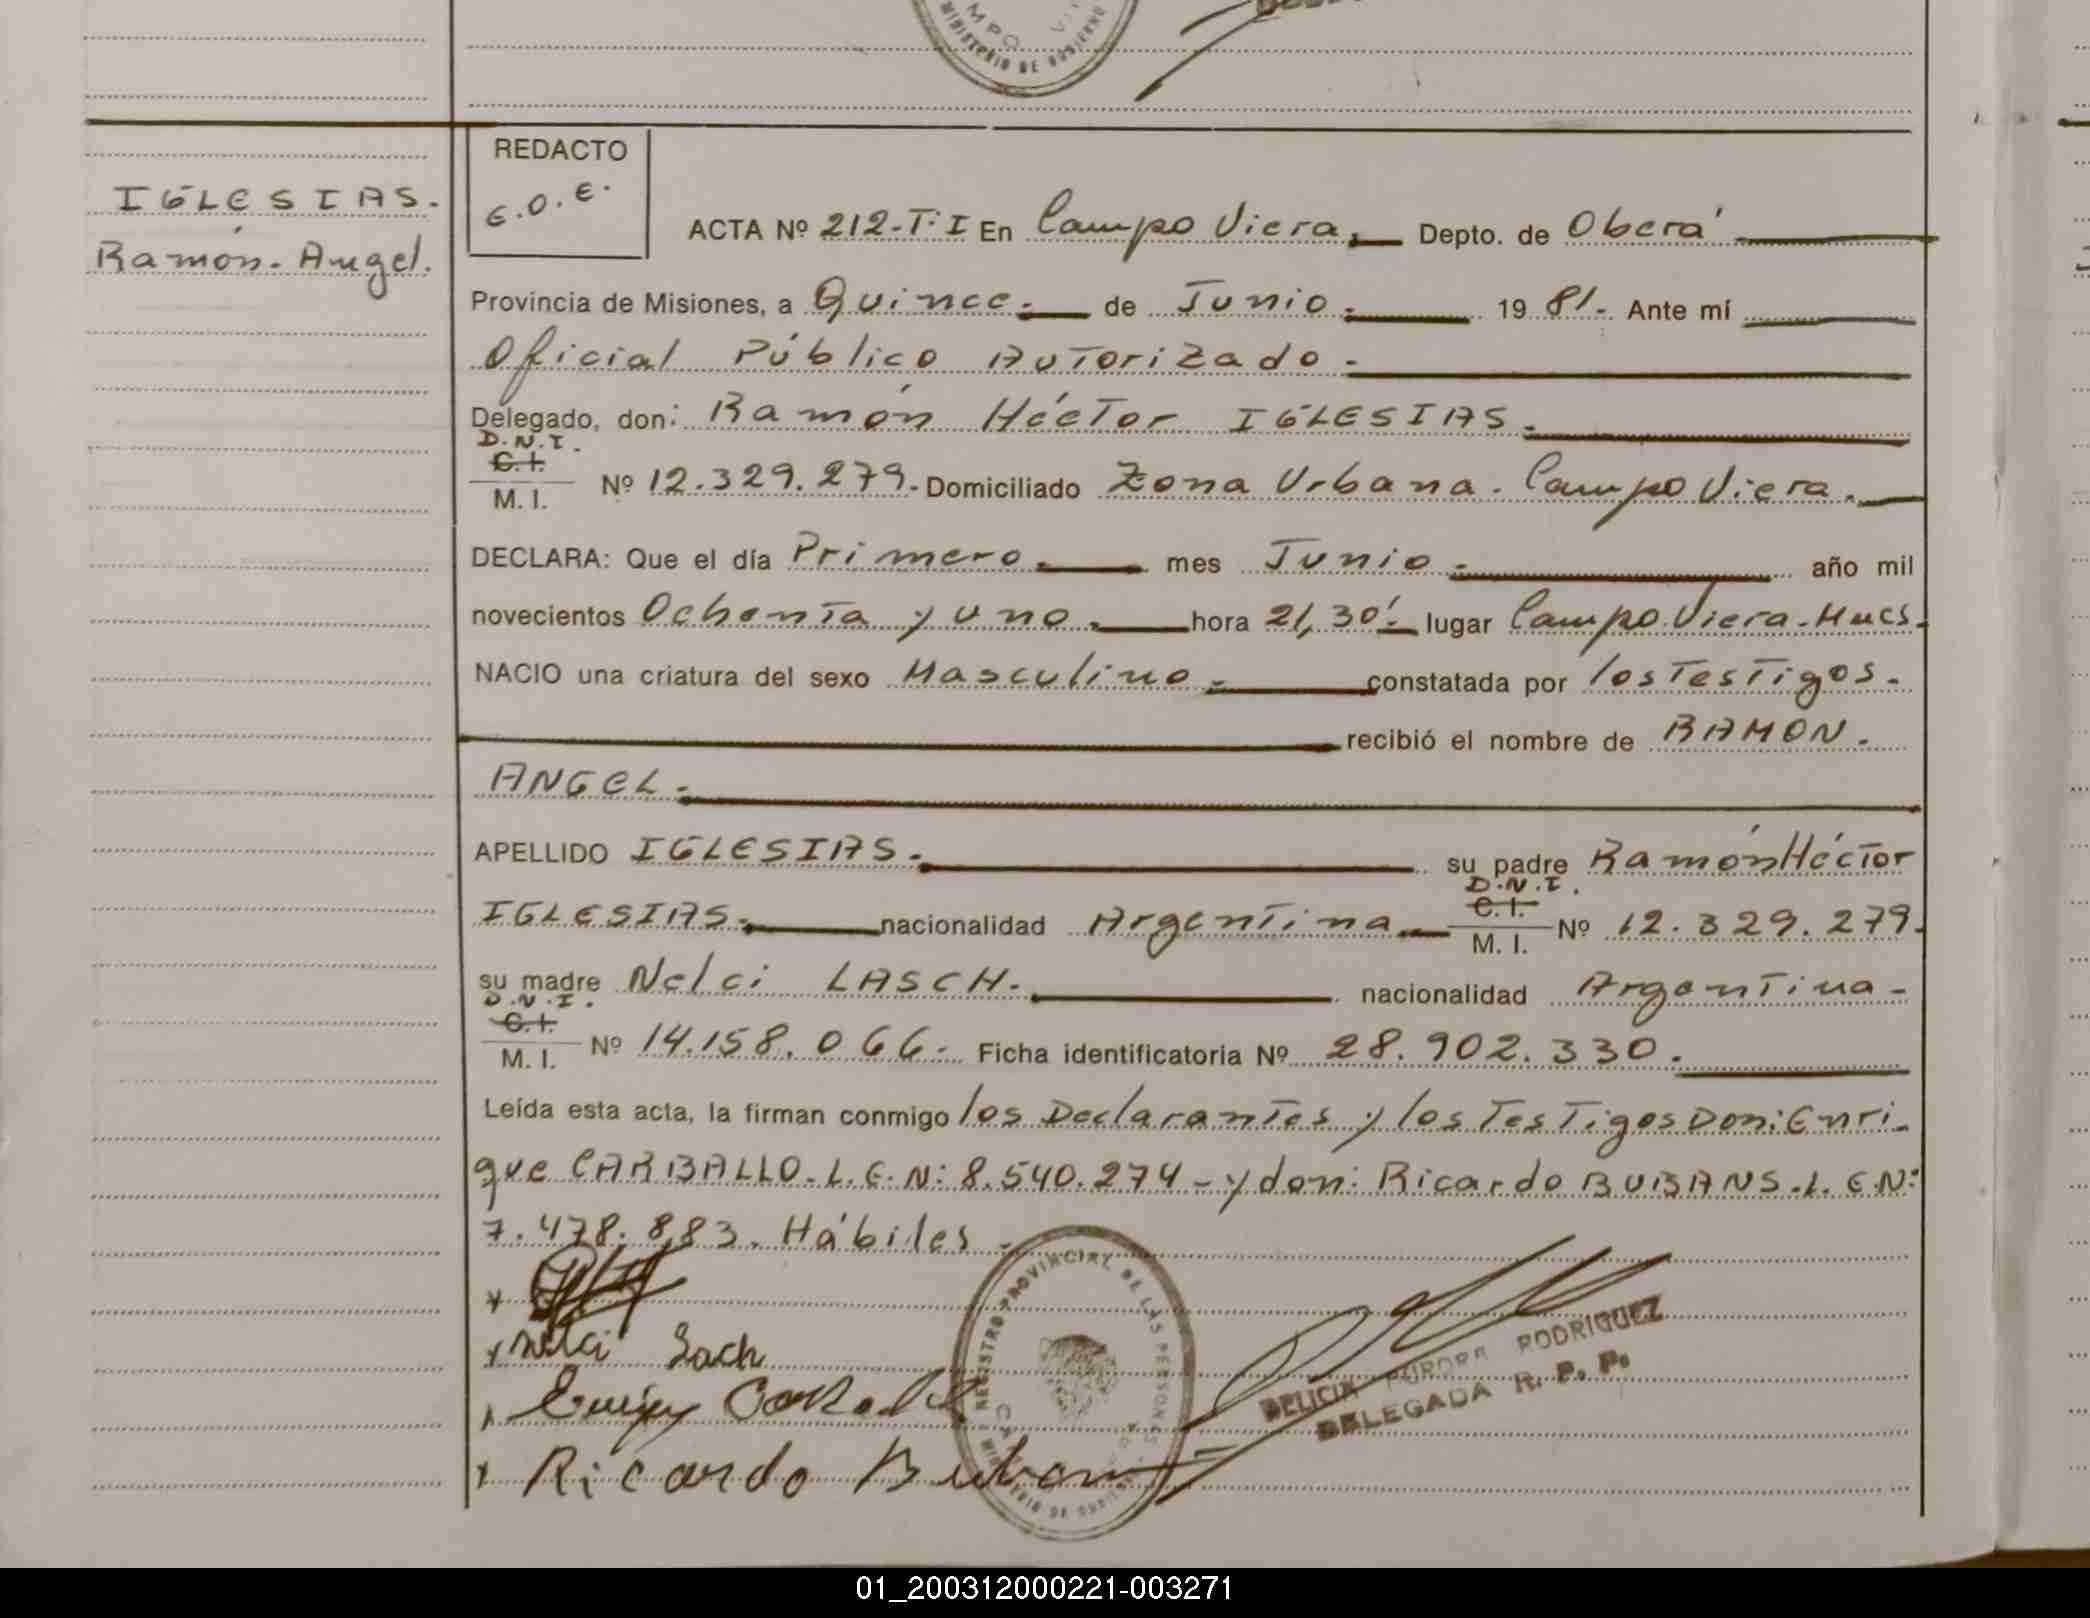 MINISTERIO DE GOBIERNO
IGLESIAS.
Ramón. Angel.
REDACTO
G.O.E.
ACTA Nº 212-T.I En Campo Viera. Depto. de Oberá
Provincia de Misiones, a Quince. de Junio. 1981.- Ante mí
Oficial Público Autorizado.
Delegado, don: Ramón Héctor IGLESIAS.
D.N.I.
C.I.
M. I. Nº 12.329.279.- Domiciliado Zona Urbana. Campo Viera.
DECLARA: Que el día Primero. mes Junio. año mil
novecientos Ochenta y uno. hora 21,30'. lugar Campo Viera-Mnes.
NACIO una criatura del sexo Masculino. constatada por los Testigos.
recibió el nombre de RAMON.
ANGEL.
APELLIDO IGLESIAS. su padre Ramón Héctor
D.N.I.
C.I.
IGLESIAS. nacionalidad Argentina. M. I. Nº 12.329.279.
su madre Nelci LASCH. nacionalidad Argentina-
D.N.I.
C.I.
M. I. Nº 14.158.066.- Ficha identificatoria Nº 28.902.330.
Leída esta acta, la firman conmigo los Declarantes y los Testigos Don: Enri-
que CARBALLO-L.E.N: 8.540.274-y don: Ricardo BUBANS.L.E.N:
7.478.883. Hábiles.
Nelci Lach
Ricardo Buban
REGISTRO PROVINCIAL DE LAS PERSONAS
MINISTERIO DE GOBIERNO
DELICIA AURORA RODRIGUEZ
DELEGADA R. P. P.
01_200312000221-003271